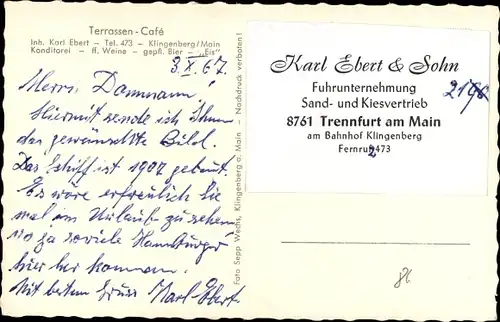 Terrassen-Café
Inh. Karl Ebert – Tel. 473 – Klingenberg/Main
Konditorei – ff. Weine – gepfl. Bier – „Eis“
3.X.67.
Herrn Dammann!
Hiermit sende ich Ihnen
das gewünschte Bild.
Das Schiff ist 1907 gebaut.
Es wäre erfreulich Sie
mal im Urlaub zu sehen,
wo ja soviele Hamburger
hier her kommen.
Mit bestem Gruss Karl Ebert
Foto Sepp Wecns, Klingenberg a. Main - Nachdruck verboten!
Karl Ebert & Sohn
Fuhrunternehmung
Sand- und Kiesvertrieb
8761 Trennfurt am Main
am Bahnhof Klingenberg
Fernruf 2473